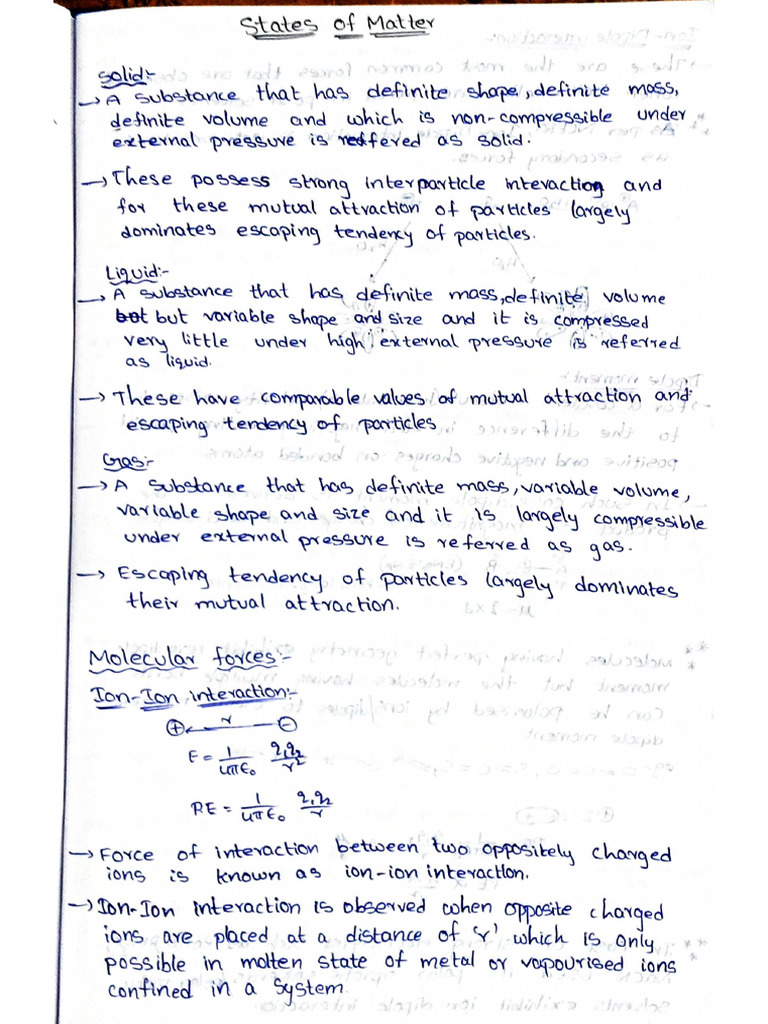 States of Matter
Solid:-
→ A substance that has definite shape, definite mass,
definite volume and which is non-compressible under
external pressure is reffered as solid.
→ These possess strong interparticle interaction and
for these mutual attraction of particles largely
dominates escaping tendency of particles.
Liquid:-
→ A substance that has definite mass, definite volume
but but variable shape and size and it is compressed
very little under high external pressure is referred
as liquid.
→ These have comparable values of mutual attraction and
escaping tendency of particles
Gas:-
→ A substance that has definite mass, variable volume,
variable shape and size and it is largely compressible
under external pressure is referred as gas.
→ Escaping tendency of particles largely dominates
their mutual attraction.
Molecular forces:-
Ion-Ion interaction:-
⊕ ← r — ⊖
F = 1/4πε₀ q₁q₂/r²
PE = 1/4πε₀ q₁q₂/r
→ Force of interaction between two oppositely charged
ions is known as ion-ion interaction.
→ Ion-Ion interaction is observed when opposite charged
ions are placed at a distance of 'r' which is only
possible in molten state of metal or vapourised ions
confined in a system.